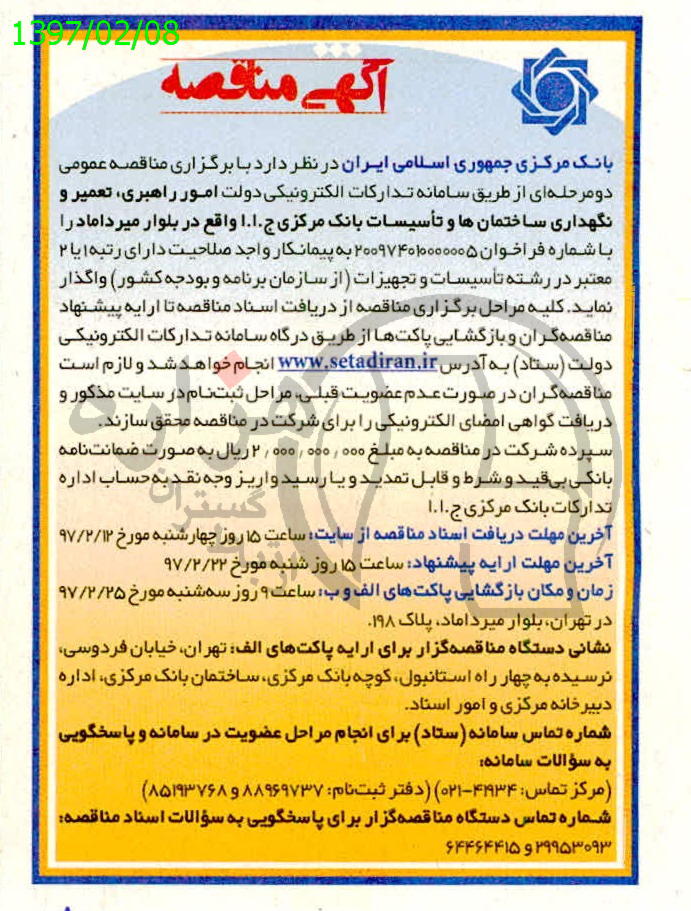 1397/02/08
آگهی مناقصه
بانک مرکزی جمهوری اسلامی ایران در نظر دارد با برگزاری مناقصه عمومی
دومرحله‌ای از طریق سامانه تدارکات الکترونیکی دولت امور راهبری، تعمیر و
نگهداری ساختمان ها و تأسیسات بانک مرکزی ج.ا.ا واقع در بلوار میرداماد را
با شماره فراخوان ۲۰۰۹۷۴۰۱۰۰۰۰۰۰۵ به پیمانکار واجد صلاحیت دارای رتبه ۱ یا ۲
معتبر در رشته تأسیسات و تجهیزات (از سازمان برنامه و بودجه کشور) واگذار
نماید. کلیه مراحل برگزاری مناقصه از دریافت اسناد مناقصه تا ارایه پیشنهاد
مناقصه‌گران و بازگشایی پاکت‌ها از طریق درگاه سامانه تدارکات الکترونیکی
دولت (ستاد) به آدرس www.setadiran.ir انجام خواهد شد و لازم است
مناقصه‌گران در صورت عدم عضویت قبلی، مراحل ثبت‌نام در سایت مذکور و
دریافت گواهی امضای الکترونیکی را برای شرکت در مناقصه محقق سازند.
سپرده شرکت در مناقصه به مبلغ ۲٬۰۰۰٬۰۰۰٬۰۰۰ ریال به صورت ضمانت‌نامه
بانکی بی‌قید و شرط و قابل تمدید و یا رسید واریز وجه نقد به حساب اداره
تدارکات بانک مرکزی ج.ا.ا
آخرین مهلت دریافت اسناد مناقصه از سایت: ساعت ۱۵ روز چهارشنبه مورخ ۹۷/۲/۱۲
آخرین مهلت ارایه پیشنهاد: ساعت ۱۵ روز شنبه مورخ ۹۷/۲/۲۲
زمان و مکان بازگشایی پاکت‌های الف و ب: ساعت ۹ روز سه‌شنبه مورخ ۹۷/۲/۲۵
در تهران، بلوار میرداماد، پلاک ۱۹۸.
نشانی دستگاه مناقصه‌گزار برای ارایه پاکت‌های الف: تهران، خیابان فردوسی،
نرسیده به چهار راه استانبول، کوچه بانک مرکزی، ساختمان بانک مرکزی، اداره
دبیرخانه مرکزی و امور اسناد.
شماره تماس سامانه (ستاد) برای انجام مراحل عضویت در سامانه و پاسخگویی
به سؤالات سامانه:
(مرکز تماس: ۴۱۹۳۴-۰۲۱) (دفتر ثبت‌نام: ۸۸۹۶۹۷۳۷ و ۸۵۱۹۳۷۶۸)
شماره تماس دستگاه مناقصه‌گزار برای پاسخگویی به سؤالات اسناد مناقصه:
۲۹۹۵۳۰۹۳ و ۶۴۴۶۴۴۱۵